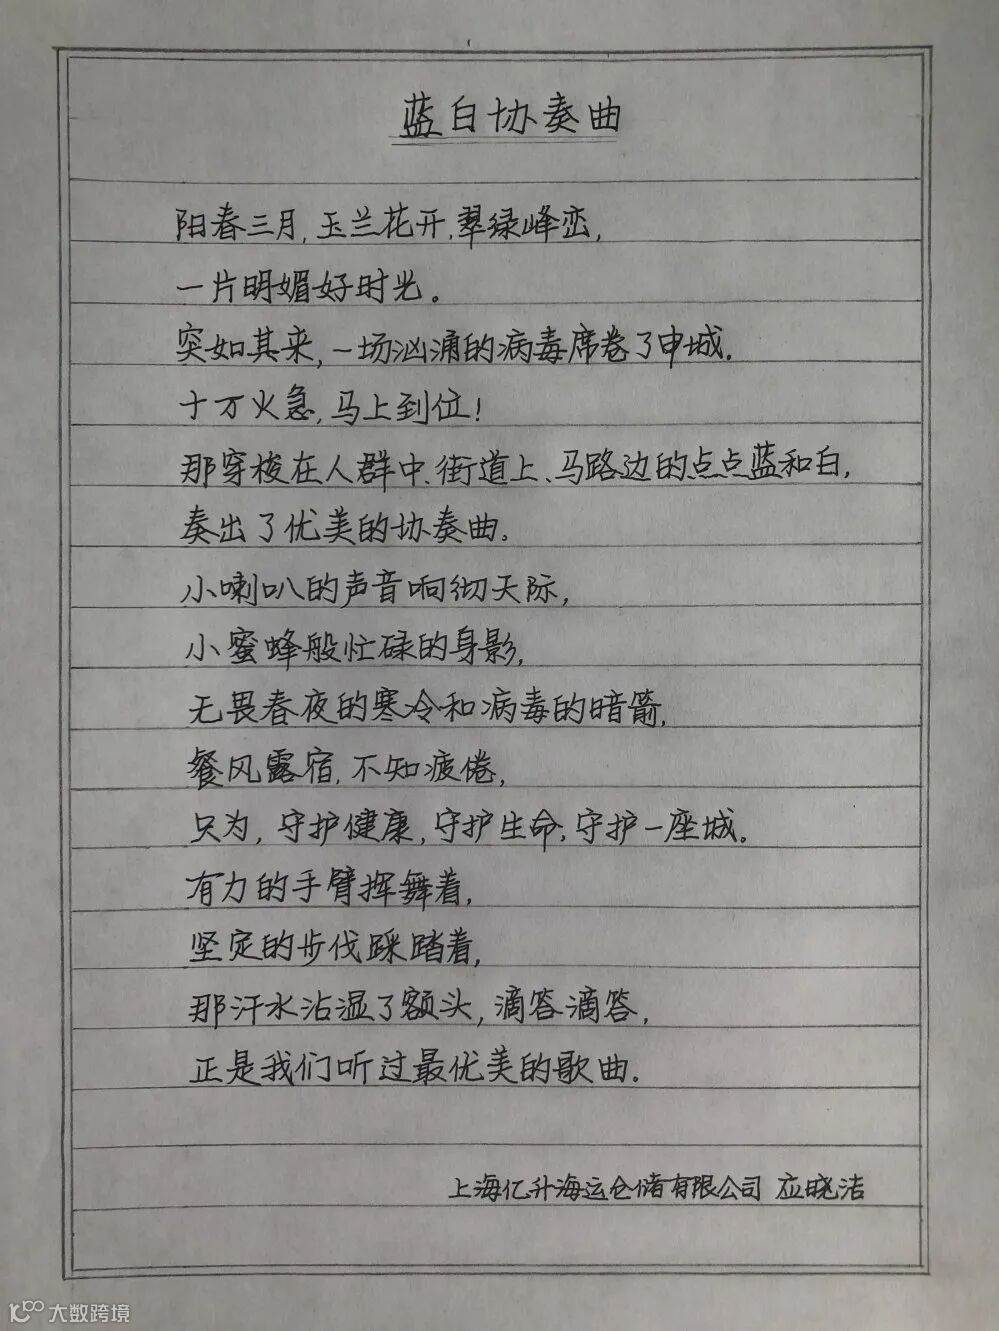 蓝白协奏曲
阳春三月,玉兰花开,翠绿峰峦,
一片明媚好时光。
突如其来,一场汹涌的病毒席卷了申城.
十万火急,马上到位!
那穿梭在人群中、街道上、马路边的点点蓝和白,
奏出了优美的协奏曲。
小喇叭的声音响彻天际,
小蜜蜂般忙碌的身影,
无畏春夜的寒冷和病毒的暗箭,
餐风露宿,不知疲倦,
只为,守护健康,守护生命,守护一座城。
有力的手臂挥舞着,
坚定的步伐踩踏着,
那汗水沾湿了额头,滴答滴答,
正是我们听过最优美的歌曲.
上海亿升海运仓储有限公司 应晓洁
大数跨境